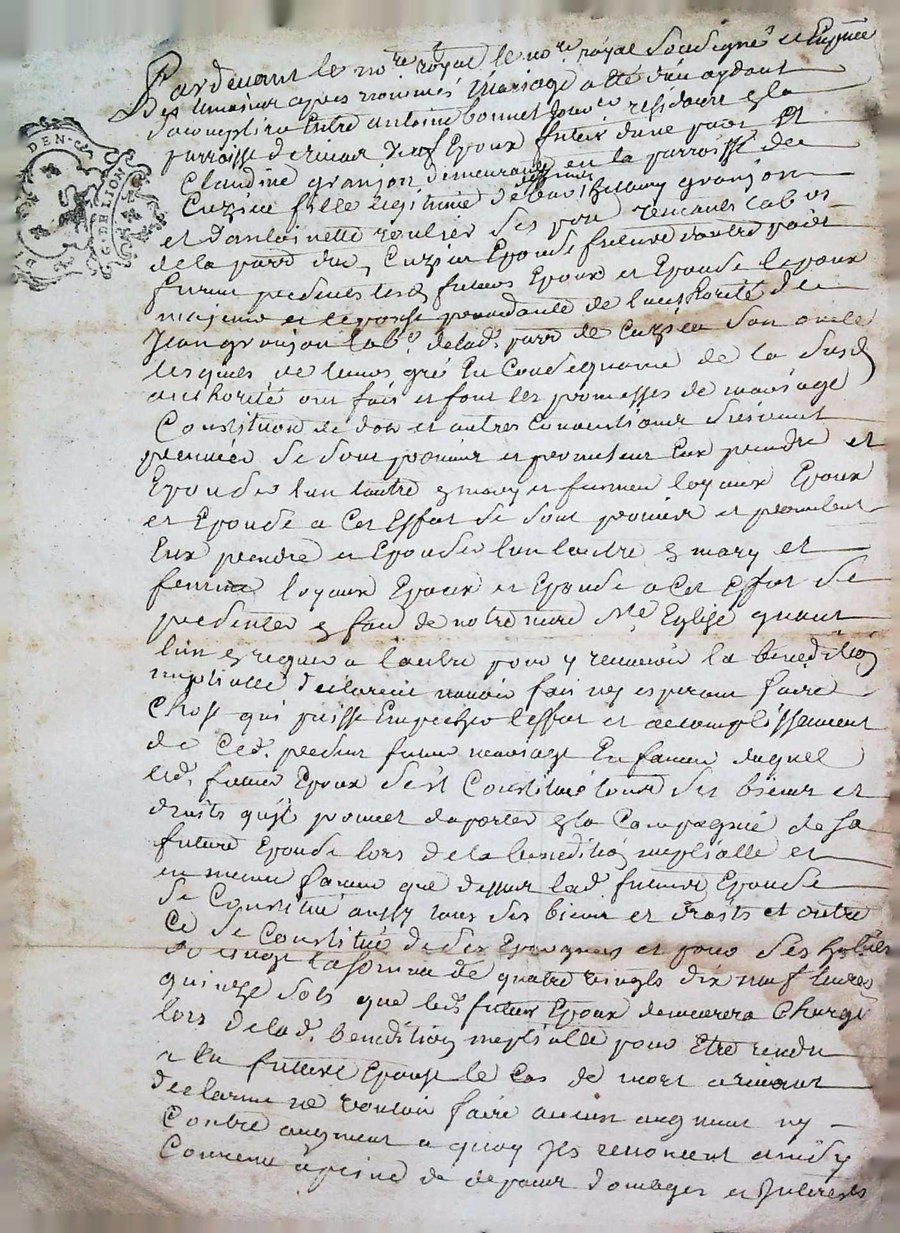 DEN.
G. DE LION
Pardevant le no.re royal le no.re royal Sousigné et En p̄nce
des temoins apres nommés Mariage a été dieu aydant
daccomplir Entre antoine bonnet residant en la
parroisse de neuf Epoux futur dune part Et
Claudine granjon demeurant en la parroisse de
Cuzieu fille legitime de barthelemy granjon
et dantoinette roulier ses pere
de la parr. dud. Cuzieu Epouse future dautre part
furent presents lesd. futurs Epoux et Epouse lepoux
majeur et lepouse procedante de lauthorité de
Jean granjon lab.r delad. parr de Cuzieu son oncle
lesquels de leurs gré En Consequance de la susd.
authorité ont fait et font les promesses de mariage
Constitution de dot et autres Conventions suivant
premier se sont promis et promettent Eux prendre et
Epouser lun lautre en mary et femme loyaux Epoux
et Epouse a Cet Effet se sont promis et promettent
Eux prendre et Epouser lun lautre en mary et
femme loyaux Epoux et Epouse a Cet Effet se
presenter en face de notre mere Ste Eglise quant
lun en requis a lautre pour y recevoir la benediction
nuptialle declarant navoir fait ny esperant faire
Chose qui puisse Empecher leffet et accomplissement
de Ced. present futur mariage En faveur duquel
led. futur Epoux sest Constitué tous ses biens et
droits quil promet daporter en la Compagnie de sa
future Epouse lors dela benediction nuptialle et
en meme faveur que dessus lad. future Epouse
se Constitue aussy tous ses biens et droits et outre
Ce se Constitue de ses Epargnes et pour ses habits
et linge la somme de quatre vingts dix neuf livres
quinze sols que led. futur Epoux demeurera Chargé
lors delad. benediction nuptialle pour Etre rendu
a la future Epouse le Cas de mort arrivant
declarant ne vouloir faire aucun augment ny
Contre augment a quoy Ils renoncent ainsy
Convenu a peine de depens domages et Interests